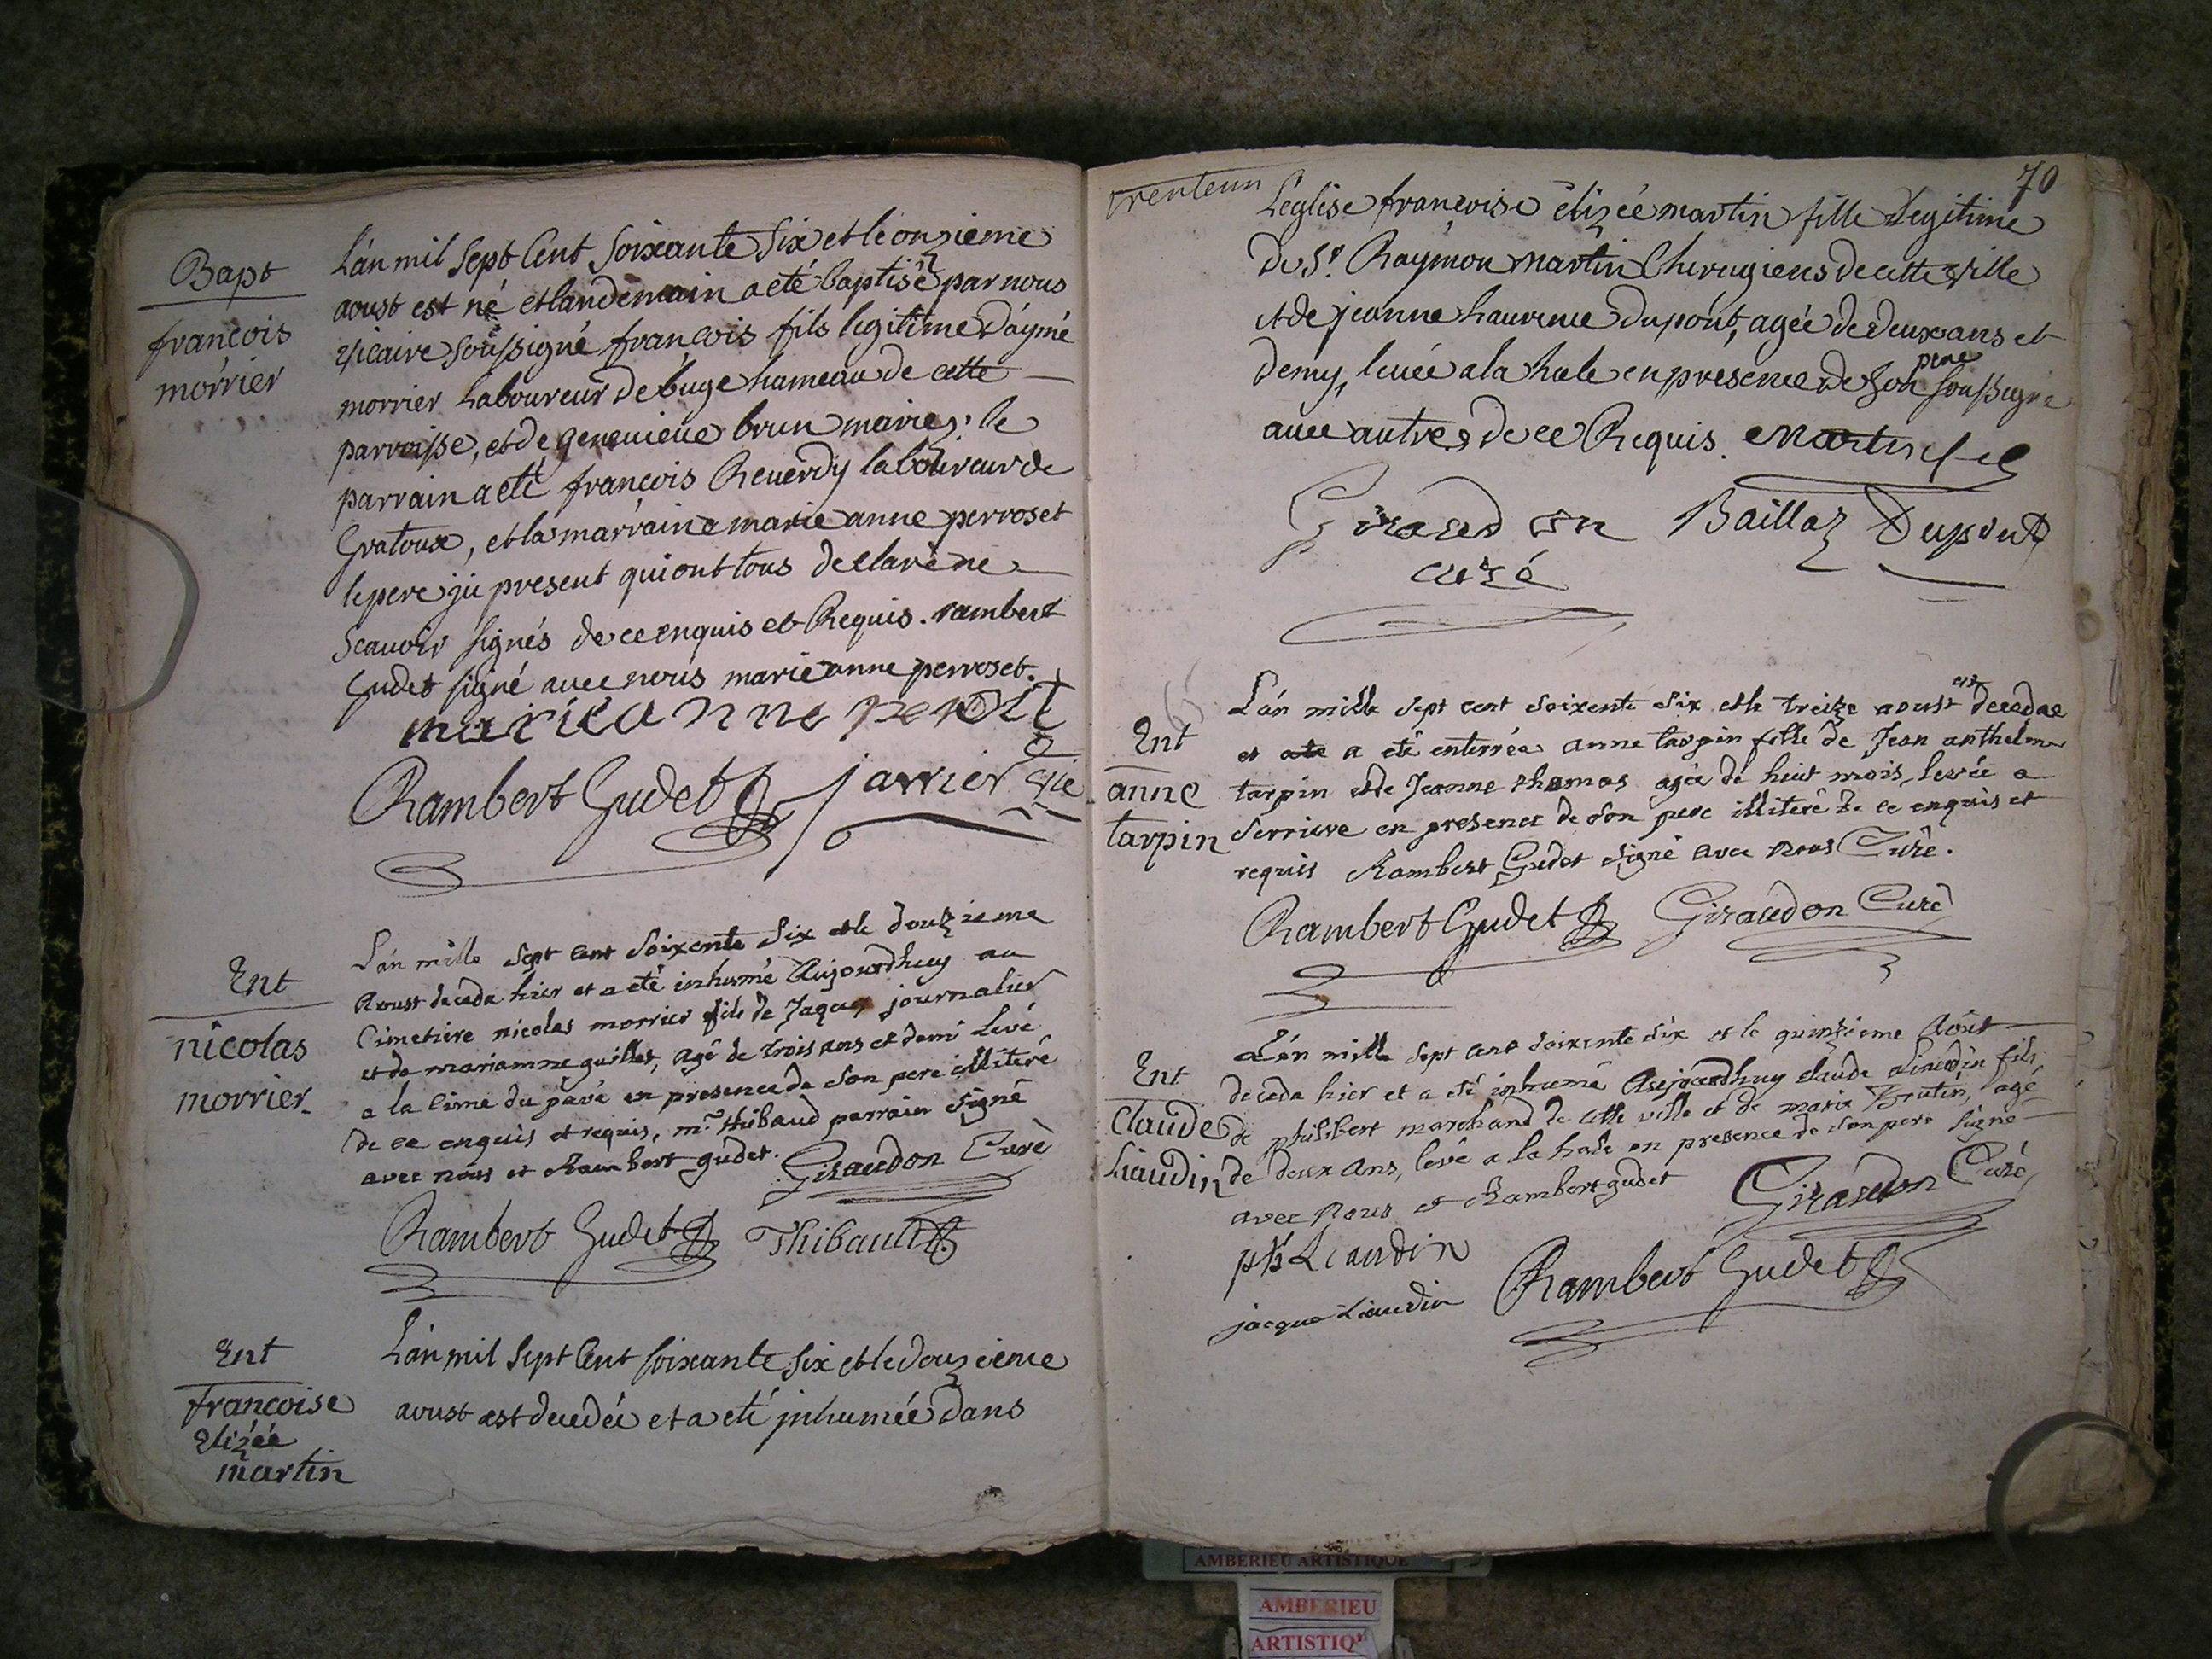 Bapt
françois
morrier
L'an mil sept Cent soixante six et le onzieme
aoust est né et landemain a eté baptisé par nous
vicaire soussigné françois fils legitime d'aymé
morrier laboureur de buge hameau de cette
parroisse, et de genevieve brun mariés; le
parrain a eté françois Reverdy laboureur de
Gratoux, et la marraine marie anne perroset
le pere ji present qui ont tous declaré ne
scavoir signés de ce enquis et Requis. rambert
Gudet signé avec nous marie anne perroset.
marieanne
Rambert Gudet javrier vic
Ent
nicolas
morrier
L'an mille sept cent soixente six et le douzieme
Aoust deceda hier et a eté inhumé Aujourdhuy au
Cimetiere nicolas morrier fils de Jaques journalier
et de marianne guillet, agé de trois ans et demi levé
a la cime du pavé en presence de son pere illiteré
de ce enquis et requis, mr thibaud parrain signé
avec nous et Rambert gudet. Giraudon Curé
Rambert Gudet Thibault
Ent
francoise
Elizée
martin
L'an mil sept Cent soixante six et le douzieme
aoust est decedée et a eté jnhumée dans
70
trenteun
l'eglise françoise élizée martin fille Legitime
du Sr. Raymon martin Chirugiens de cette ville
et de jeanne laurence dupont, agée de deux ans et
demy, levée a la hale en presence de son pere soussigné
avec autres de ce Requis. Martin
Giraudon Baillaz Dupont
curé
Ent
anne
tarpin
L'an mille sept cent soixente six et le treize aoust est decedee
et a eté enterrée anne tarpin fille de Jean anthelme
tarpin et de Jeanne thomas agée de huit mois, levée a
Serrieve en presence de son pere illiteré de ce enquis et
requis Rambert Gudet signé avec nous Curé.
Rambert Gudet Giraudon Curé
Ent
Claude
Liaudin
L'an mille sept cent soixente six et le quinzieme Aout
deceda hier et a eté inhumé Aujourdhuy claude Liaudin fils
de philibert marchand de cette ville et de marie Trutin, agé
de deux ans, levé a la hale en presence de son pere signé
avec nous et Rambert gudet Giraudon Curé
ph Liaudin
jacque Liaudin Rambert Gudet
AMBERIEU ARTISTIQUE
AMBERIEU
ARTISTIQ